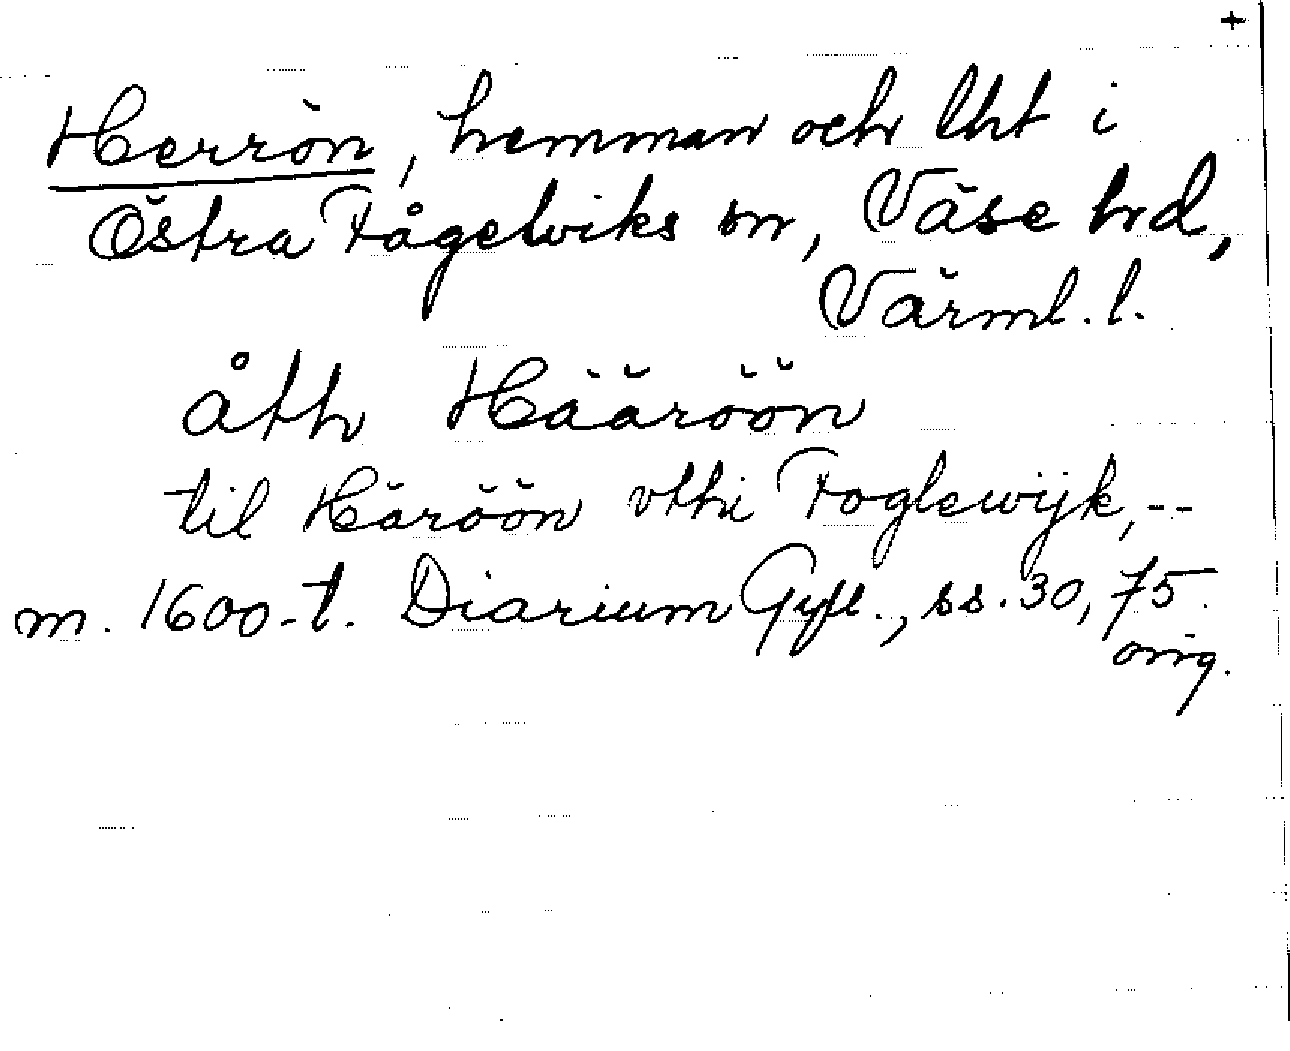 +
Herrön, hemman och lht i
Östra Fågelviks sn, Väse hd,
Värml. l.
åth Hääröön
til Häröön vthi Foglewijk, --
m. 1600-t. Diarium Gyll., ss. 30, 75.
orig.